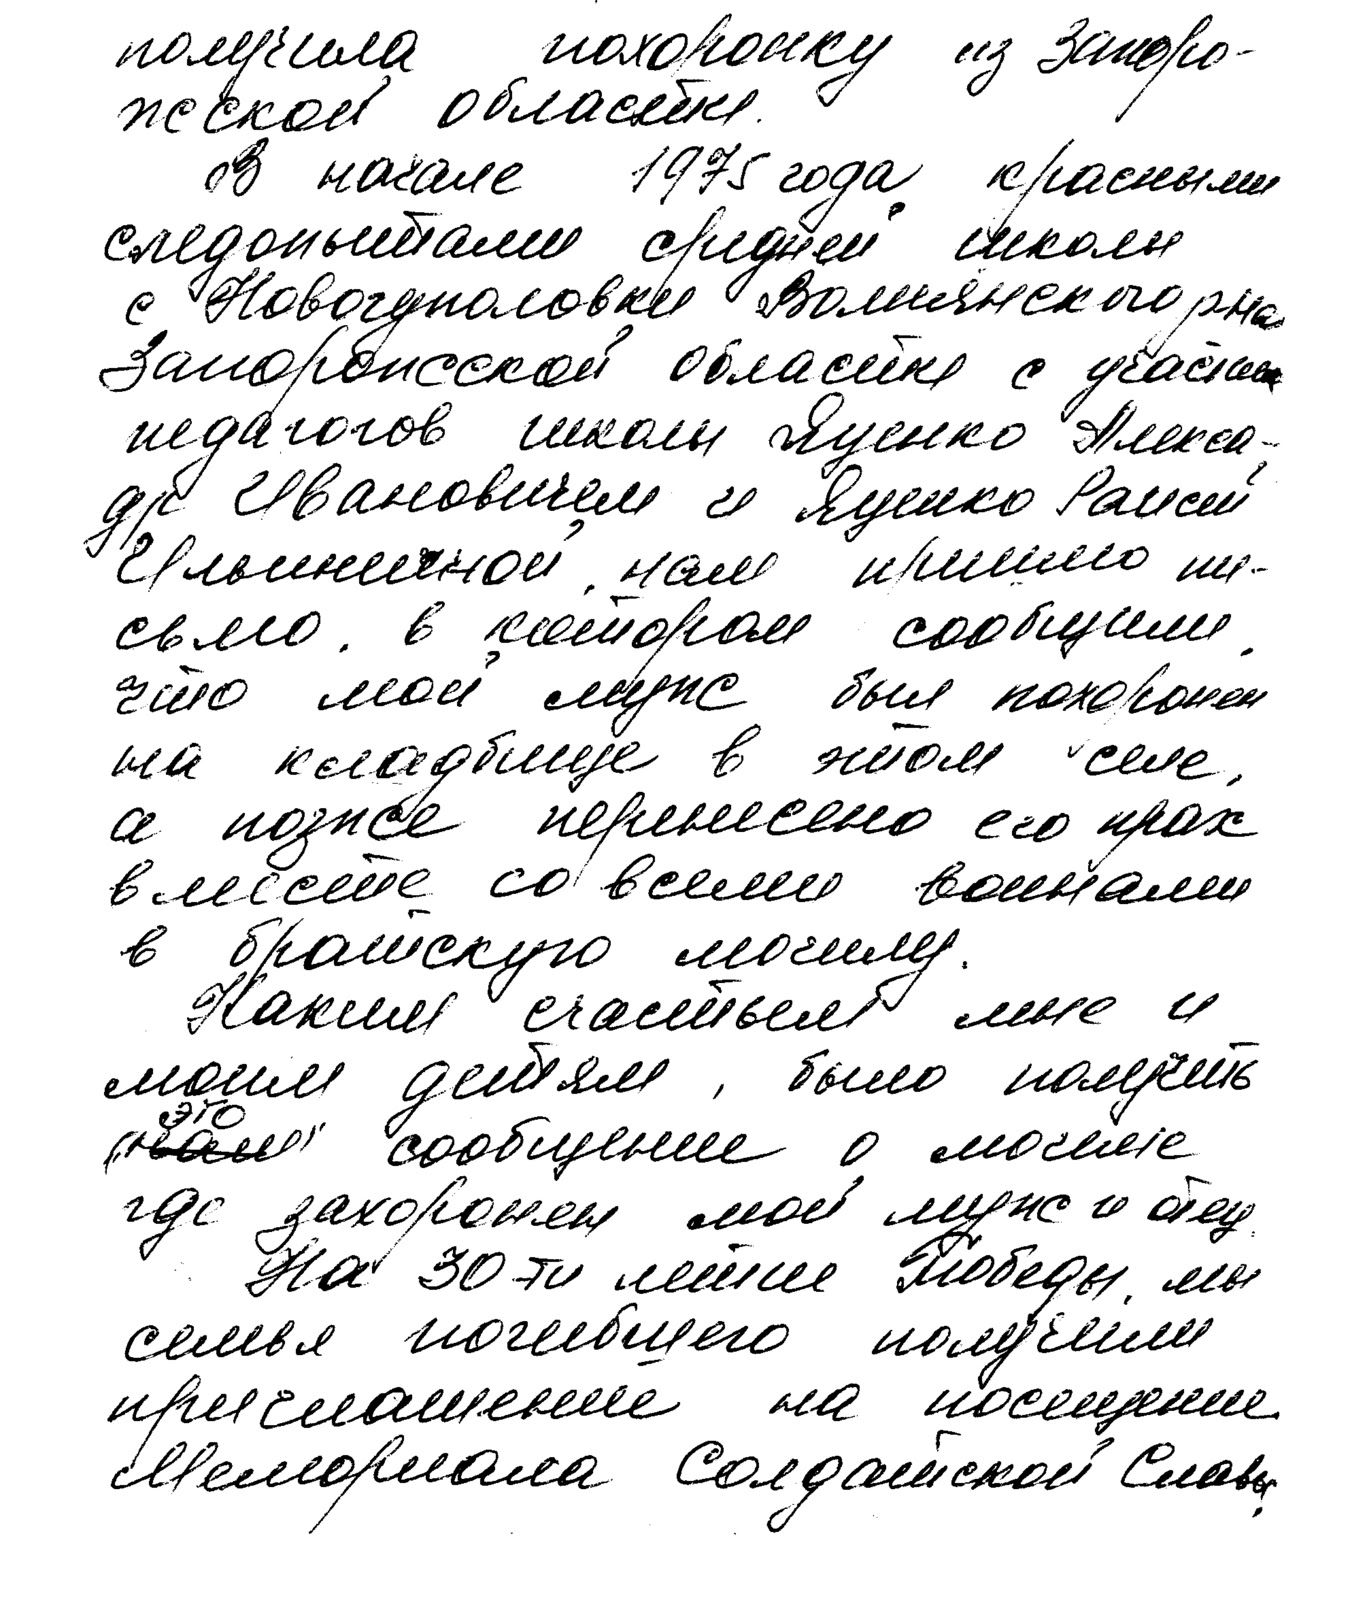 получила похоронку из Запоро-
жской области.
В начале 1975 года, красными
следопытами средней школы
с Новогуполовки Вольнянского р-на
Запорожсской области с участием
педагогов школы Яценко Алекса-
др Ивановичем и Яценко Раисой
Ильиничной, нам пришло пи-
сьмо, в котором сообщили,
что мой муж был похоронен
на кладбище в этом селе,
а позже перенесено его прах
вместе со всеми воинами
в братскую могилу.
Каким счастьем мне и
моим детям, было получить
это
нам сообщение о могиле
где захоронен мой муж и отец.
На 30-ти летие Победы, мы
семья погибшего получили
приглашение на посещение
Мемориала Солдатской Славы,